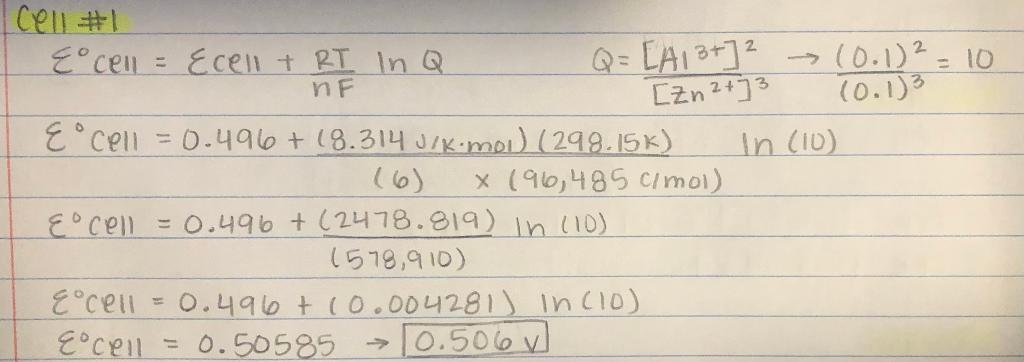 Cell #1
ε°cell = εcell + RT/nF ln Q    Q = [Al3+]²/[Zn2+]³ → (0.1)²/(0.1)³ = 10
ε°cell = 0.496 + (8.314 J/K·mol)(298.15K)/(6) x (96,485 C/mol) ln (10)
ε°cell = 0.496 + (2478.819)/(578,910) ln (10)
ε°cell = 0.496 + (0.004281) ln (10)
ε°cell = 0.50585 → 0.506 V